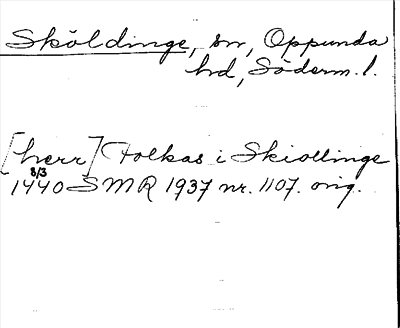 Sköldinge, sn, Oppunda
hd, Söderm. l.
[herr] Folkas i Skiollinge
8/3
1440 SMR 1937 nr. 1107. orig.